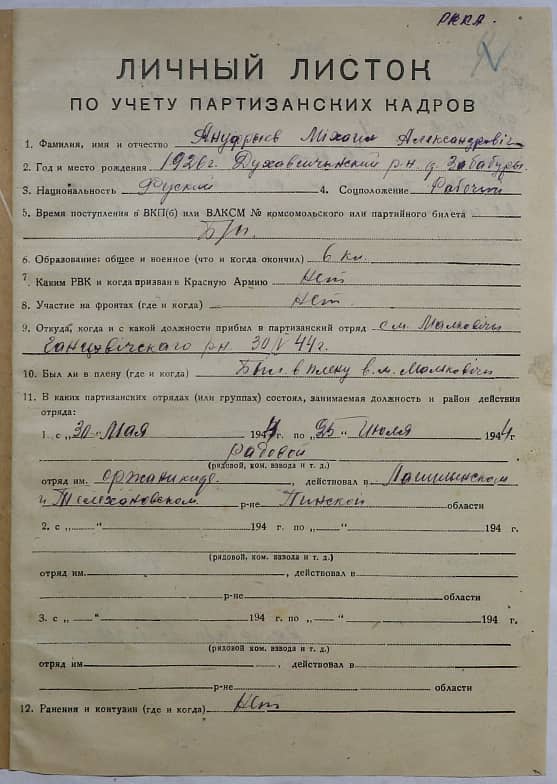 РККА.
ЛИЧНЫЙ ЛИСТОК
ПО УЧЕТУ ПАРТИЗАНСКИХ КАДРОВ
1. Фамилия, имя и отчество Ануфрыев Міхаил Александровіч
2. Год и место рождения 1926 г. Духавсчынский р-н. д. Забабуры.
3. Национальность Руский 4. Соцположение Рабочий
5. Время поступления в ВКП(б) или ВЛКСМ № комсомольского или партийного билета
Б/п.
6. Образование: общее и военное (что и когда окончил) 6 кл.
7. Каким РВК и когда призван в Красную Армию Нет
8. Участие на фронтах (где и когда) Нет.
9. Откуда, когда и с какой должности прибыл в партизанский отряд с м. Малковічи
Ганцэвічского рн. 30/V 44 г.
10. Был ли в плену (где и когда) Был в плену в. м. Малковичи
11. В каких партизанских отрядах (или группах) состоял, занимаемая должность и район действия
отряда:
1. с „30" Мая 1944 г. по „25" Июля 1944 г.
Радовой
(рядовой, ком. взвода и т. д.)
отряд им. Оржаникидзе, действовал в Лашинском
и Телехановском р-не Пинской области
2. с „ " 194 г. по „ " 194 г.
(рядовой, ком. взвода и т. д.)
отряд им. , действовал в
р-не области
3. с „ " 194 г. по „ " 194 г.
(рядовой, ком. взвода и т. д.)
отряд им. , действовал в
р-не области
12. Ранения и контузии (где и когда) Нет